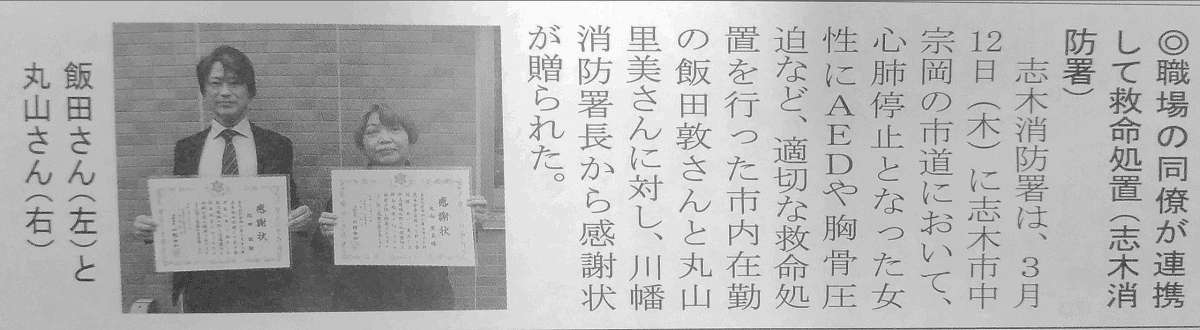 ◎職場の同僚が連携
して救命処置(志木消
防署)
志木消防署は、3月
12日(木)に志木市中
宗岡の市道において、
心肺停止となった女
性にAEDや胸骨圧
迫など、適切な救命処
置を行った市内在勤
の飯田敦さんと丸山
里美さんに対し、川幡
消防署長から感謝状
が贈られた。
感謝状
感謝状
飯田さん(左)と
丸山さん(右)